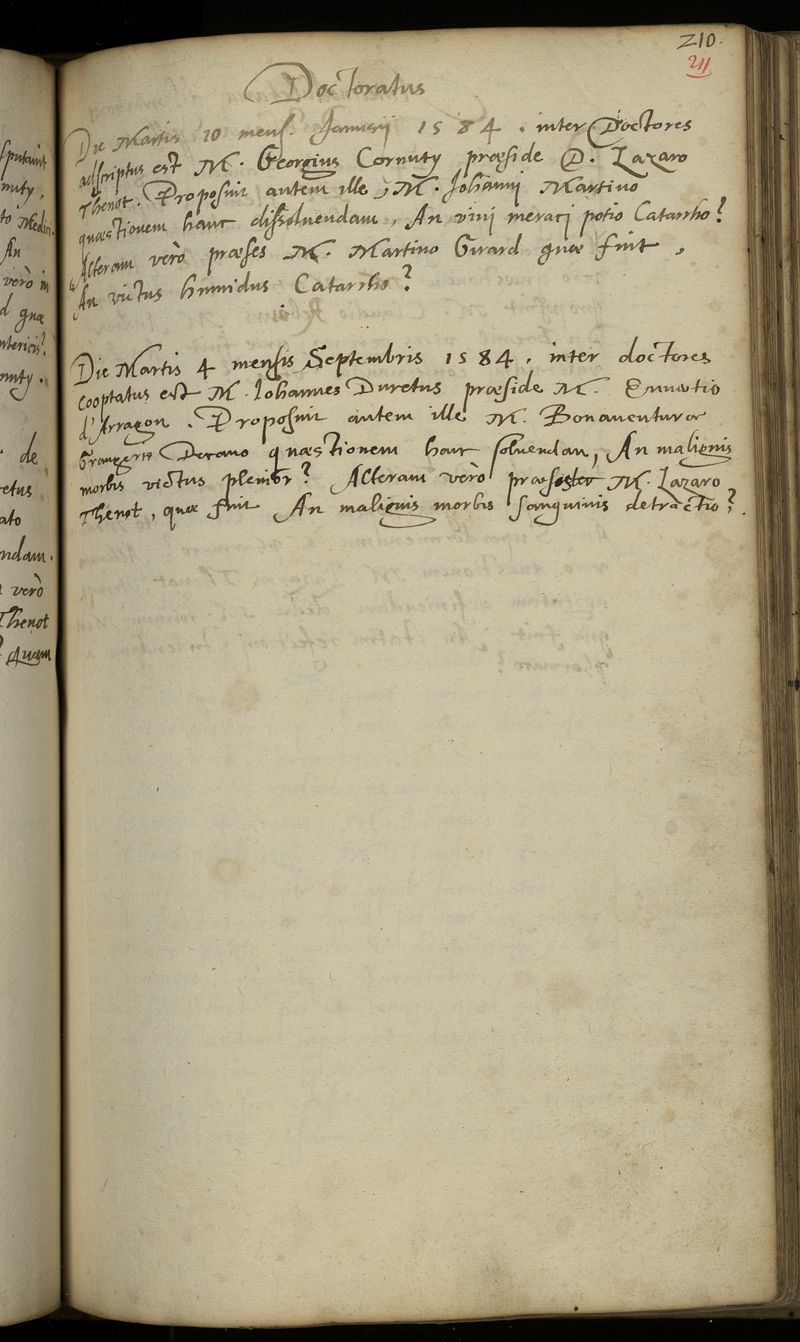 210.
211
Doctoratus
Die Martis 10 mens. Januarij 1584. inter Doctores
adscriptus est M. Georgius Cornuty præside D. Lazaro
Thenot. Proposuit autem ille, M. Johanni Martino
quæstionem hanc dissoluendam, An vini meraci potio Catarrho?
Alteram verò præses M. Martino Girard quæ fuit,
An victus humidus Catarrho?
Die Martis 4 mensis Septembris 1584. inter doctores
cooptatus est M. Iohannes Duretus præside M.
d'Arragon. Proposuit autem ille M. Bonauentura
Grangerio Decano quæstionem hanc soluendam, An malignis
morbis victus plenior? Alteram verò præses M. Lazaro
Thenot, quæ fuit An malignis morbis sanguinis detractio?
sputauit
nuty,
to Medici
An
verò M
d quæ
ntericis?
nuty.
de
retus
ato
ndam.
verò
Thenot
? Quam